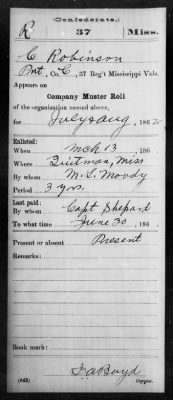 (Confederate.)
R 37 Miss.
C Robinson
Pvt, Co. C, 37 Reg't Mississippi Vols.
Appears on
Company Muster Roll
of the organization named above,
for July & Aug, 186
Enlisted:
When Mch 13, 186
Where Quitman, Miss
By whom M. S. Moody
Period 3 yrs.
Last paid:
By whom Capt Shepard
To what time June 30, 186
Present or absent Present
Remarks:
Book mark:
(642) J A Boyd
Copyist.